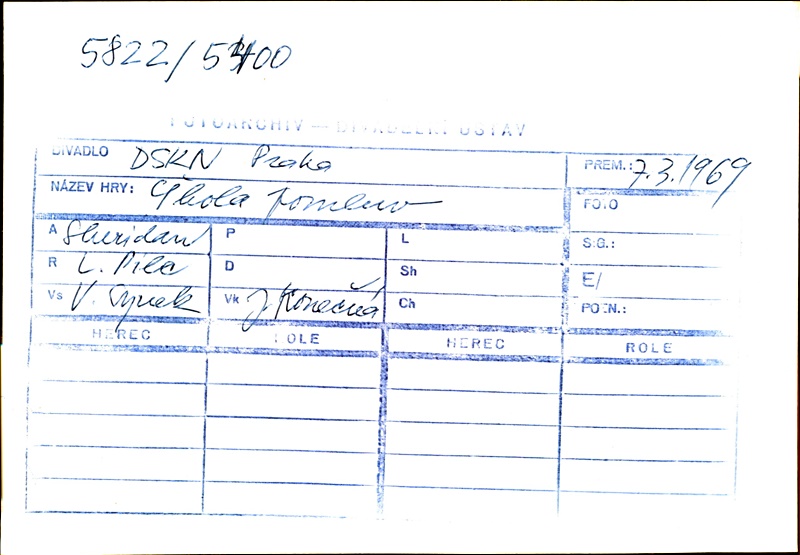 5822/5400
FOTOARCHIV — DIVADELNÍ ÚSTAV
DIVADLO DSKN Praha
PREM.: 7.3.1969
NÁZEV HRY: Škola pomluv
FOTO
A Sheridan P L S.G.:
R L. Pile D Sh E/
Vs V. Synek Vk J. Konečná Ch POZN.:
HEREC ROLE HEREC ROLE